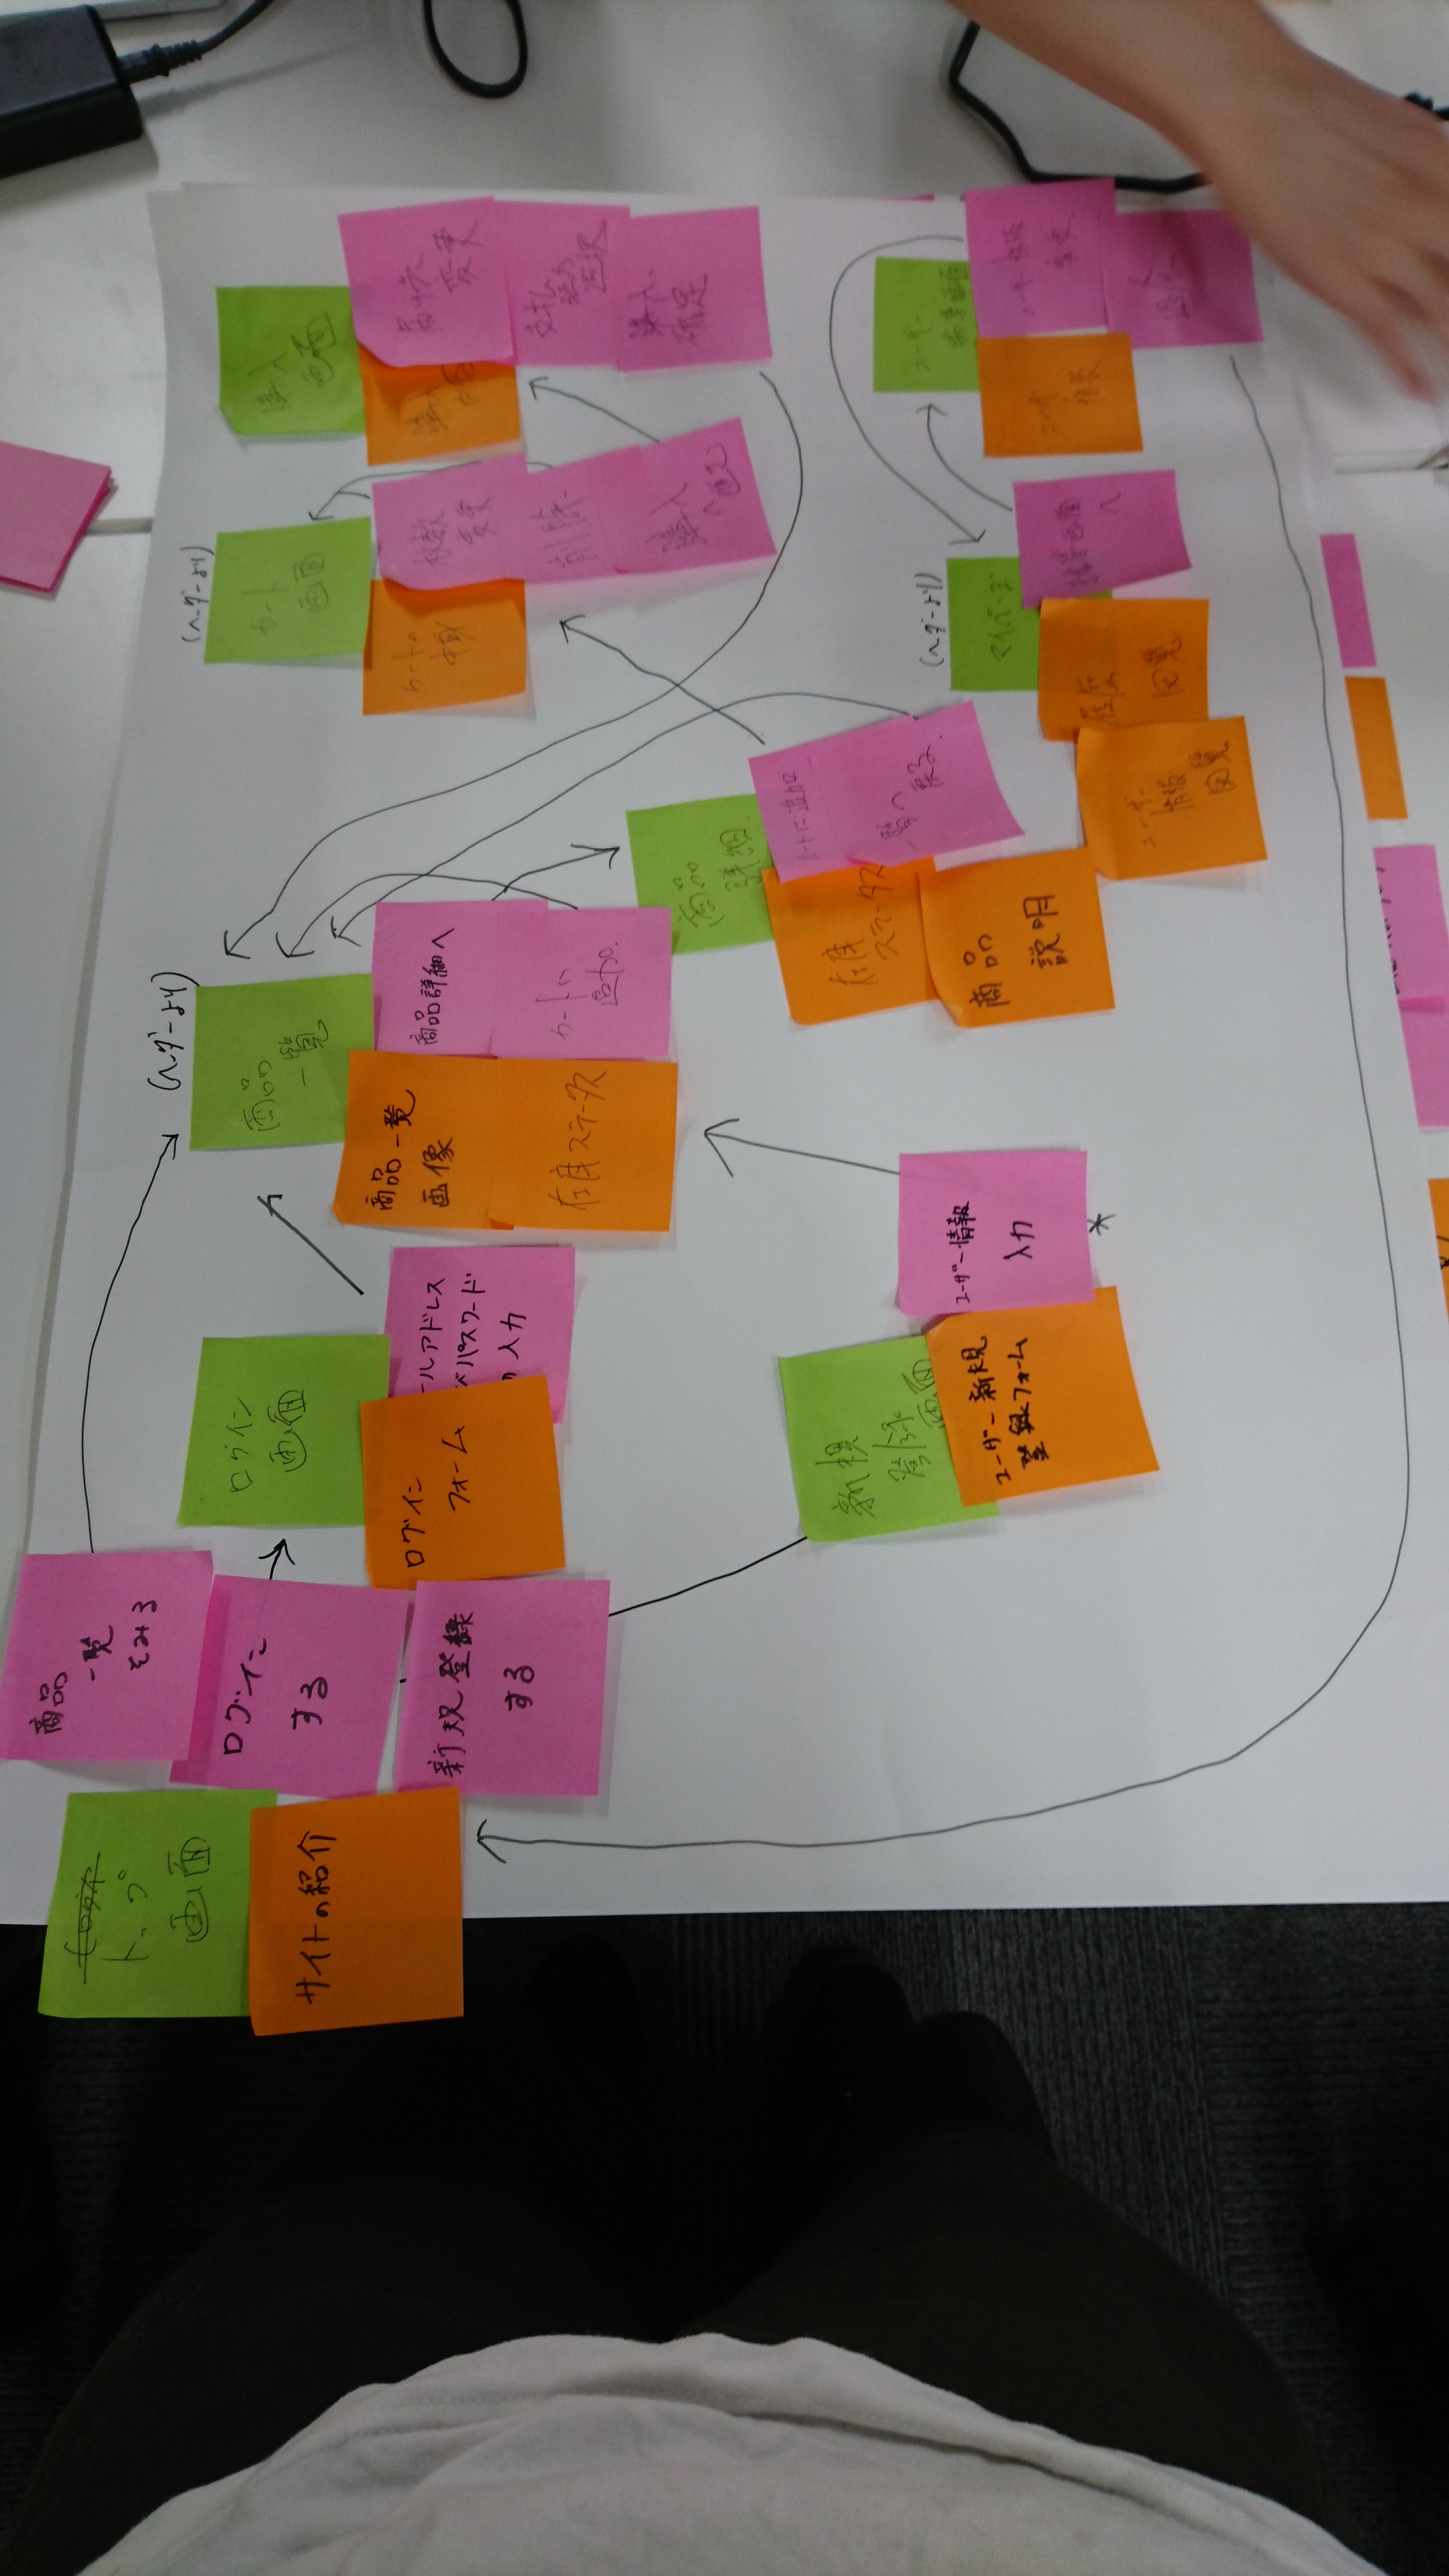 トップ
画面
サイトの紹介
商品
一覧
をみる
ログイン
する
新規登録
する
ログイン
画面
ログイン
フォーム
ールアドレス
パスワード
入力
新規
登録
画面
ユーザー新規
登録フォーム
ユーザー情報
入力
*
(ヘッダーより)
商品
一覧
商品一覧
画像
在庫ステータス
商品詳細へ
カートに
追加
商品
詳細
在庫
ステータス
商品
説明
カートに追加
一覧へ
戻る
(ヘッダーより)
カート
画面
カートの
中身
枚数
変更
削除
購入
へ進む
購入
画面
届け先
変更
支払い
方法
選択
購入
確定
(ヘッダーより)
マイページ
履歴
閲覧
ユーザー
情報
閲覧
ユーザー